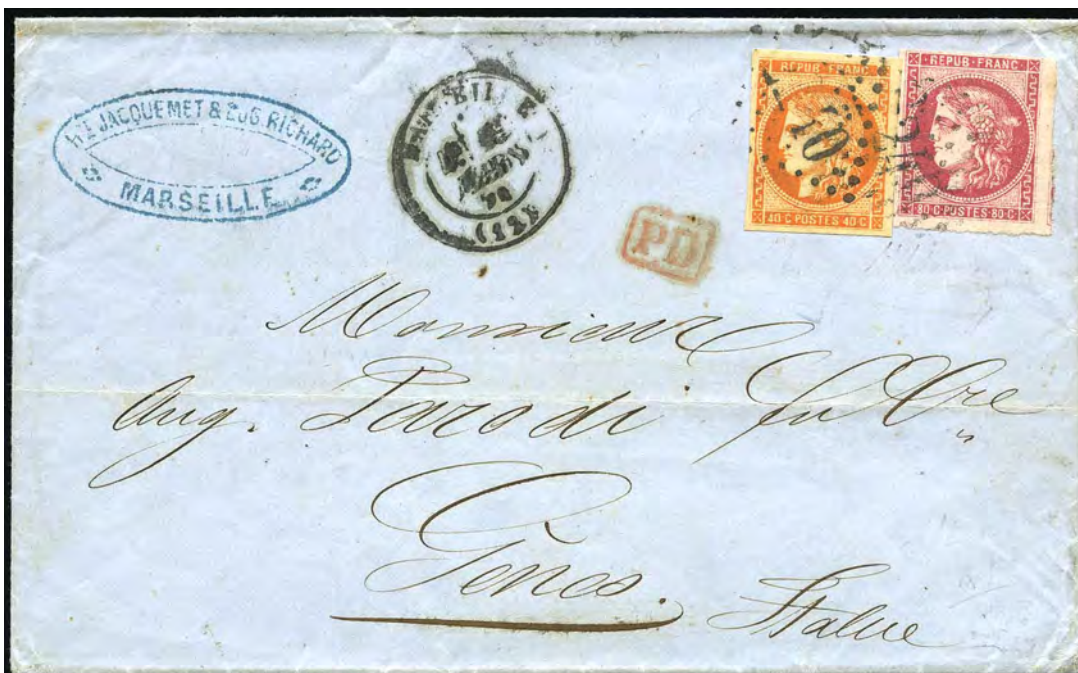 JACQUEMET & EUG. RICHARD
MARSEILLE
MARSEILLE
(12)
REPUB·FRANC
40·C·POSTES·40·C
REPUB·FRANC
80·C·POSTES·80·C
PD
Monsieur
Aug. Parodi fu
Gênes.
Italie